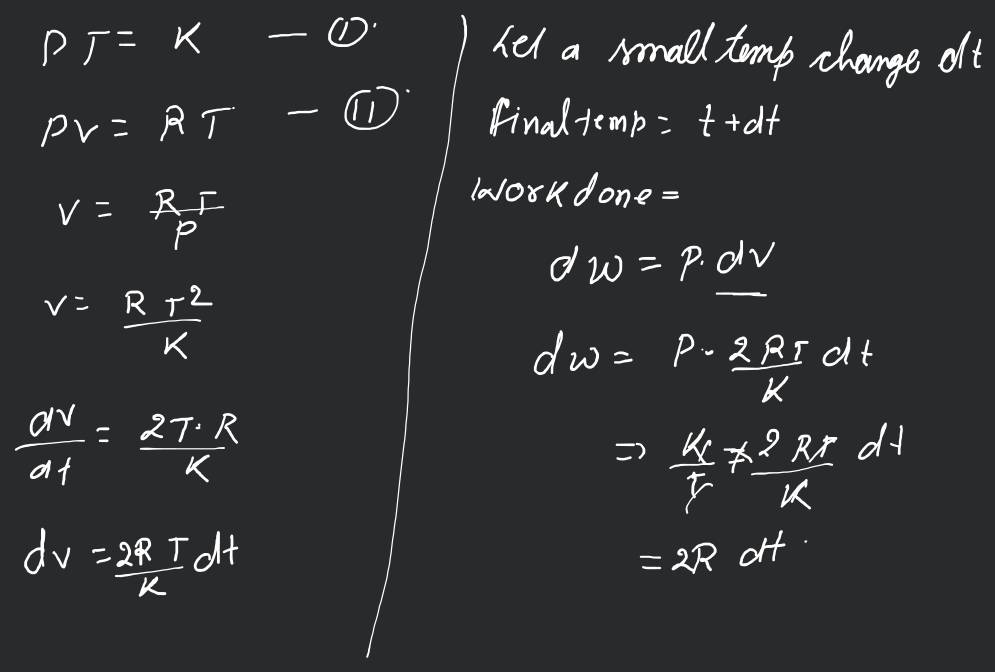 PT = K — ①
PV = RT — ⑪
V = RT/P
V = RT²/K
dv/dt = 2T·R/K
dv = 2RT/K dt
Let a small temp change dt
final temp = t + dt
Work done =
dw = P. dv
dw = P. 2RT/K dt
=> K/T × 2RT/K dt
= 2R dt.